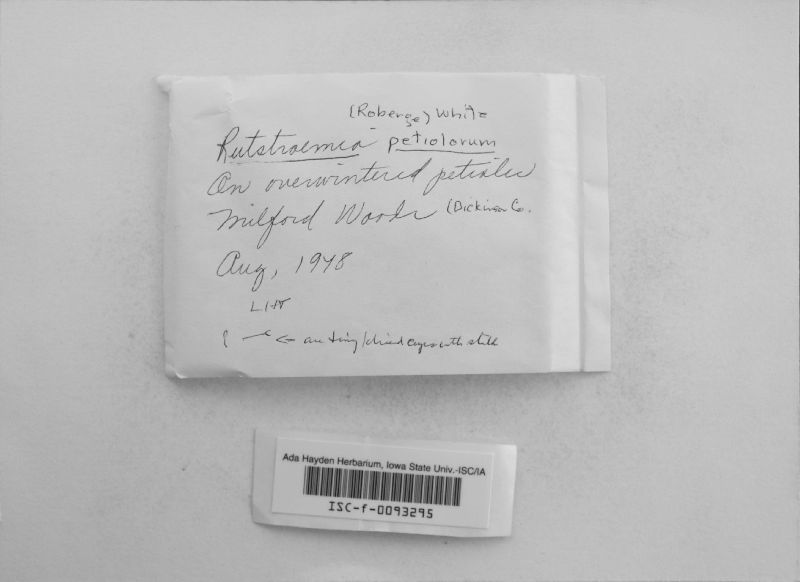 (Roberge) White
Rutstroemia petiolorum
On overwintered petioles
Milford Woods (Dickinson Co.
Aug, 1948
LHT
are tiny dried cups with stalk
Ada Hayden Herbarium, Iowa State Univ.-ISC/IA
ISC-f-0093295